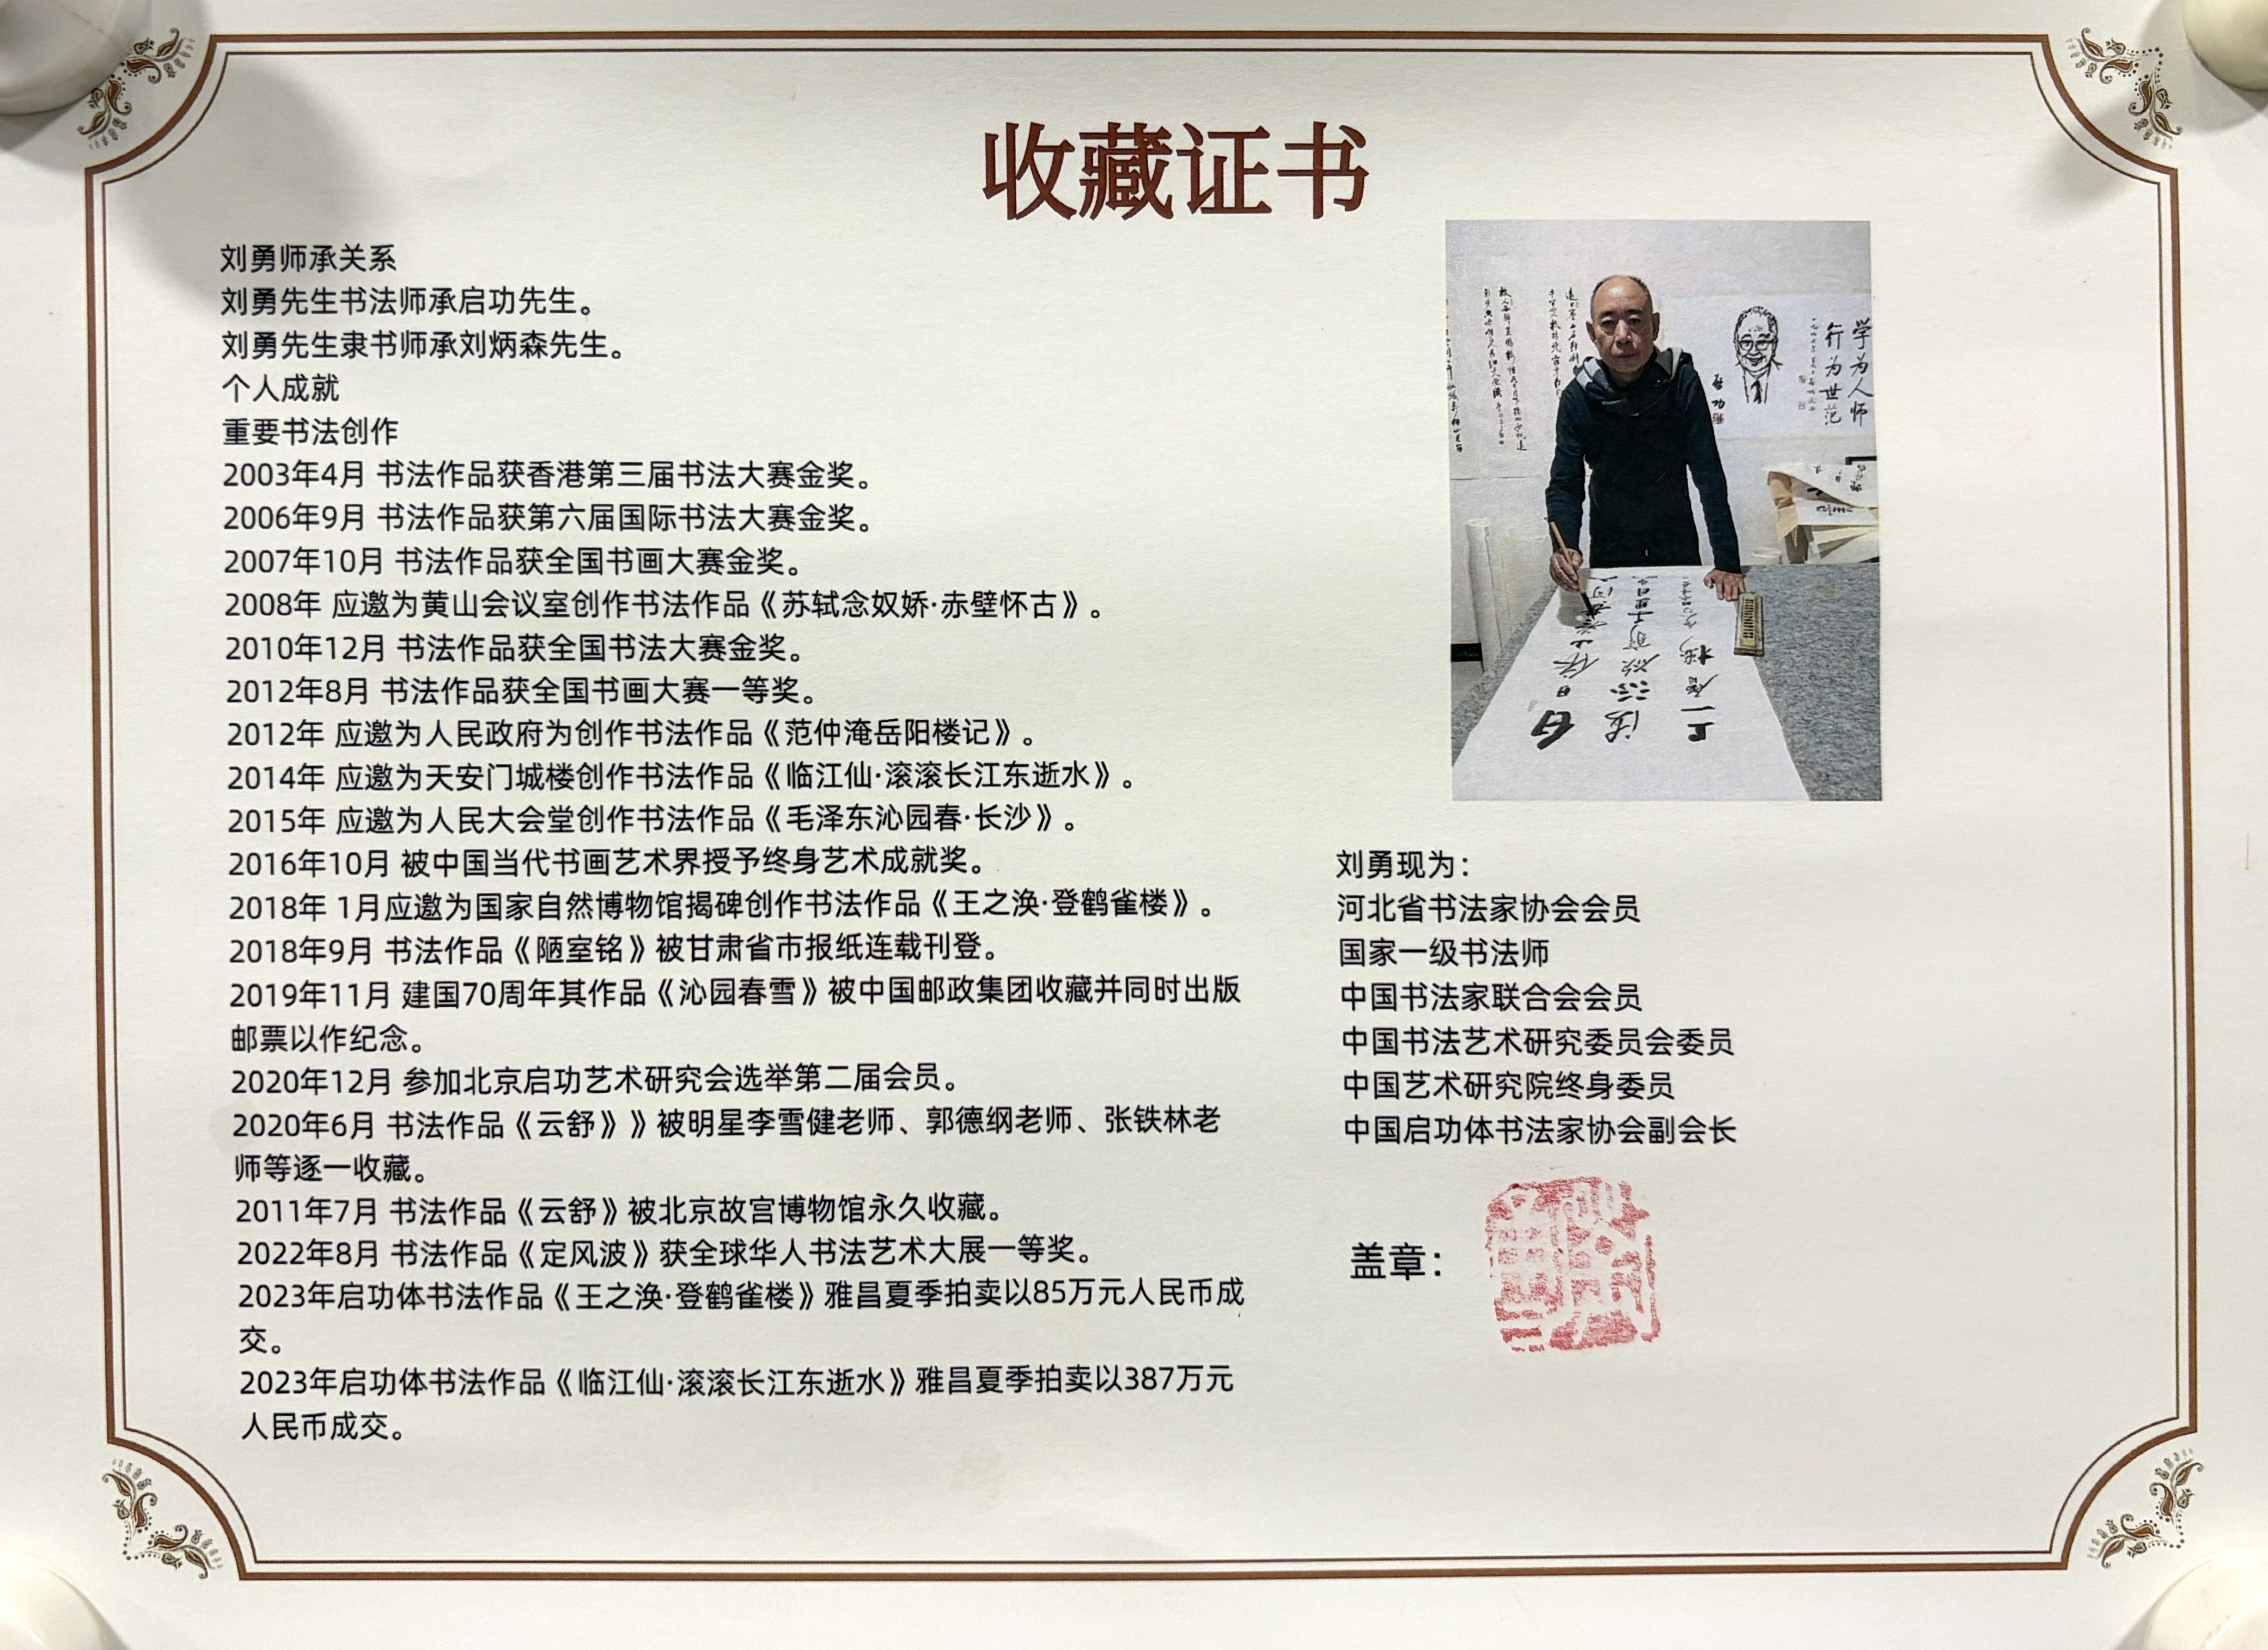 收藏证书
刘勇师承关系
刘勇先生书法师承启功先生。
刘勇先生隶书师承刘炳森先生。
个人成就
重要书法创作
2003年4月 书法作品获香港第三届书法大赛金奖。
2006年9月 书法作品获第六届国际书法大赛金奖。
2007年10月 书法作品获全国书画大赛金奖。
2008年 应邀为黄山会议室创作书法作品《苏轼念奴娇·赤壁怀古》。
2010年12月 书法作品获全国书法大赛金奖。
2012年8月 书法作品获全国书画大赛一等奖。
2012年 应邀为人民政府为创作书法作品《范仲淹岳阳楼记》。
2014年 应邀为天安门城楼创作书法作品《临江仙·滚滚长江东逝水》。
2015年 应邀为人民大会堂创作书法作品《毛泽东沁园春·长沙》。
2016年10月 被中国当代书画艺术界授予终身艺术成就奖。
2018年 1月应邀为国家自然博物馆揭碑创作书法作品《王之涣·登鹤雀楼》。
2018年9月 书法作品《陋室铭》被甘肃省市报纸连载刊登。
2019年11月 建国70周年其作品《沁园春雪》被中国邮政集团收藏并同时出版
邮票以作纪念。
2020年12月 参加北京启功艺术研究会选举第二届会员。
2020年6月 书法作品《云舒》》被明星李雪健老师、郭德纲老师、张铁林老
师等逐一收藏。
2011年7月 书法作品《云舒》被北京故宫博物馆永久收藏。
2022年8月 书法作品《定风波》获全球华人书法艺术大展一等奖。
2023年启功体书法作品《王之涣·登鹤雀楼》雅昌夏季拍卖以85万元人民币成
交。
2023年启功体书法作品《临江仙·滚滚长江东逝水》雅昌夏季拍卖以387万元
人民币成交。
学为人师
行为世范
启功
刘勇现为：
河北省书法家协会会员
国家一级书法师
中国书法家联合会会员
中国书法艺术研究委员会委员
中国艺术研究院终身委员
中国启功体书法家协会副会长
盖章：